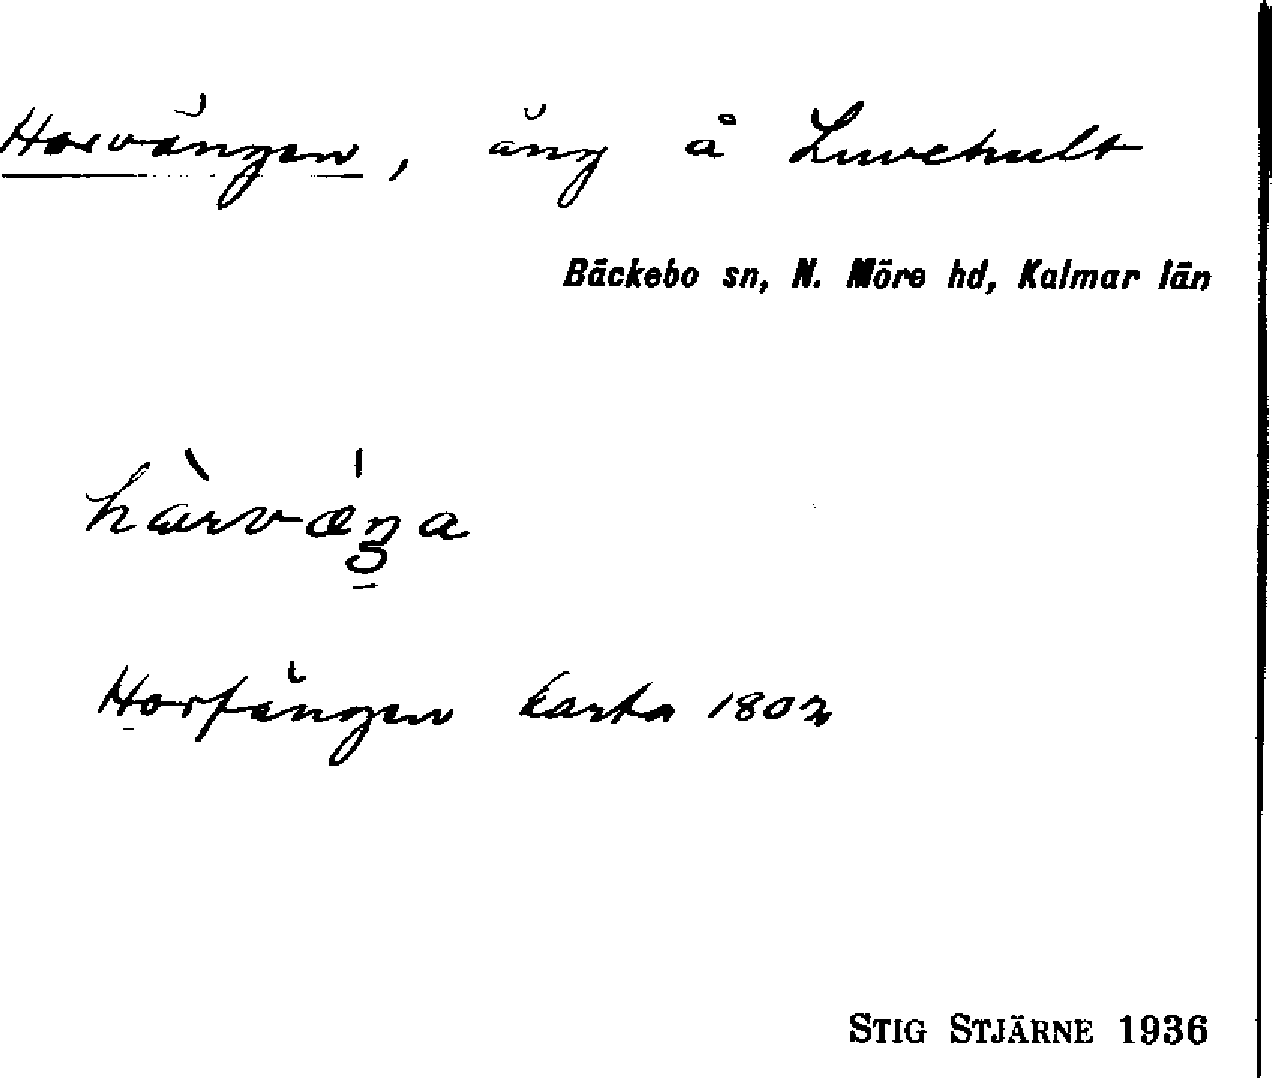 Horvängen, äng å Luvehult
Bäckebo sn, N. Möre hd, Kalmar län
Horfängen karta 1802
STIG STJÄRNE 1936